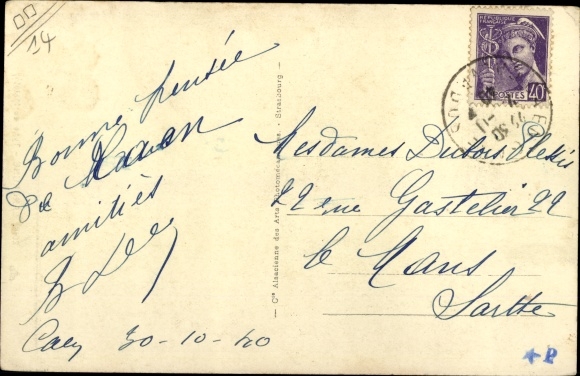 14
Bonne pensée
de
amitiés
Caen 30-10-40
— Cie Alsacienne des Arts Photomécaniques - Strasbourg —
REPUBLIQUE
FRANÇAISE
POSTES 40c
Mesdames Dubois
22 rue Gastelier 22
le Mans
Sarthe